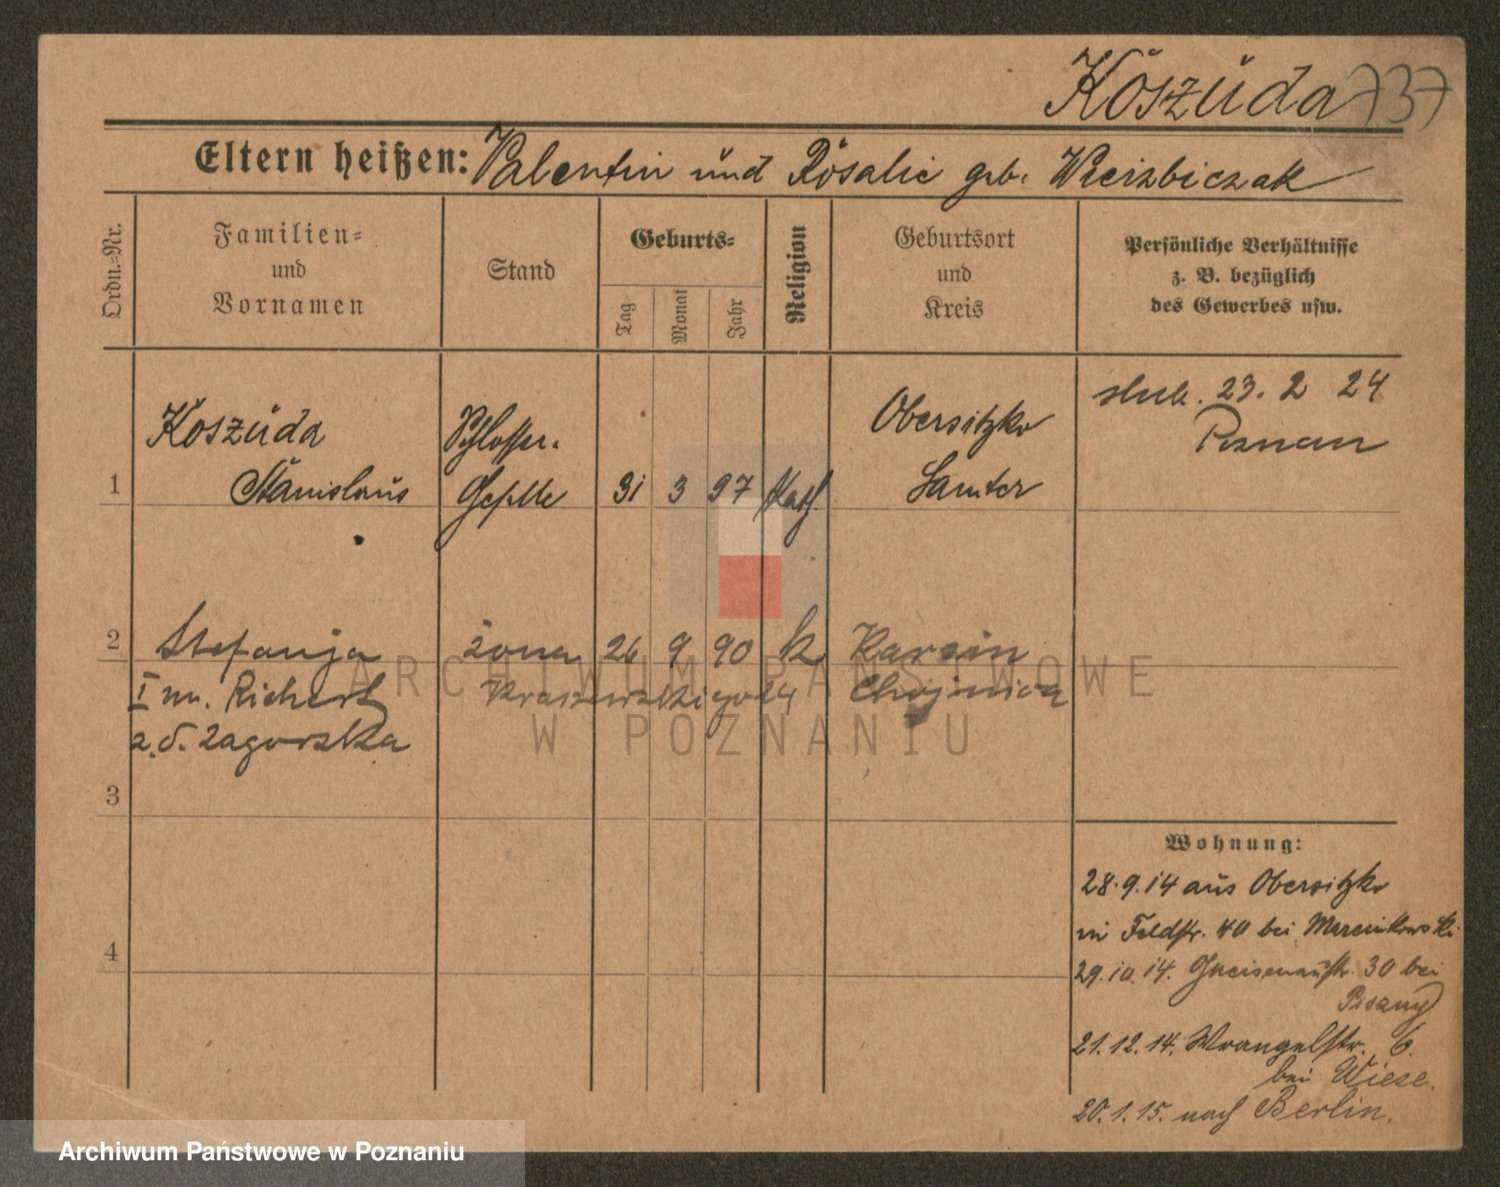 Koszuda 737
Eltern heißen: Valentin und Rosalie geb. Wierzbiczak
Ordn.-Nr.
Familien-
und
Vornamen
Stand
Geburts-
Tag
Monat
Jahr
Religion
Geburtsort
und
Kreis
Persönliche Verhältnisse
z. B. bezüglich
des Gewerbes usw.
1
Koszuda
Stanislaus
Schlosser-
Geselle
31 3 97 Kath.
Obersitzko
Samter
ślub. 23. 2 24
Poznan
2
Stefanja
żona 26 9 90 k
Karsin
I m. Richert
Chojnice
z. d. Zagorska
3
4
Wohnung:
28.9.14 aus Obersitzko
in Feldstr. 40 bei Marcinkowski
29.10.14. Gneisenaustr. 30 bei
21.12.14. Wrangelstr. 6.
bei Wiese.
20.1.15. nach Berlin.
ARCHIWUM PAŃSTWOWE
W POZNANIU
Archiwum Państwowe w Poznaniu